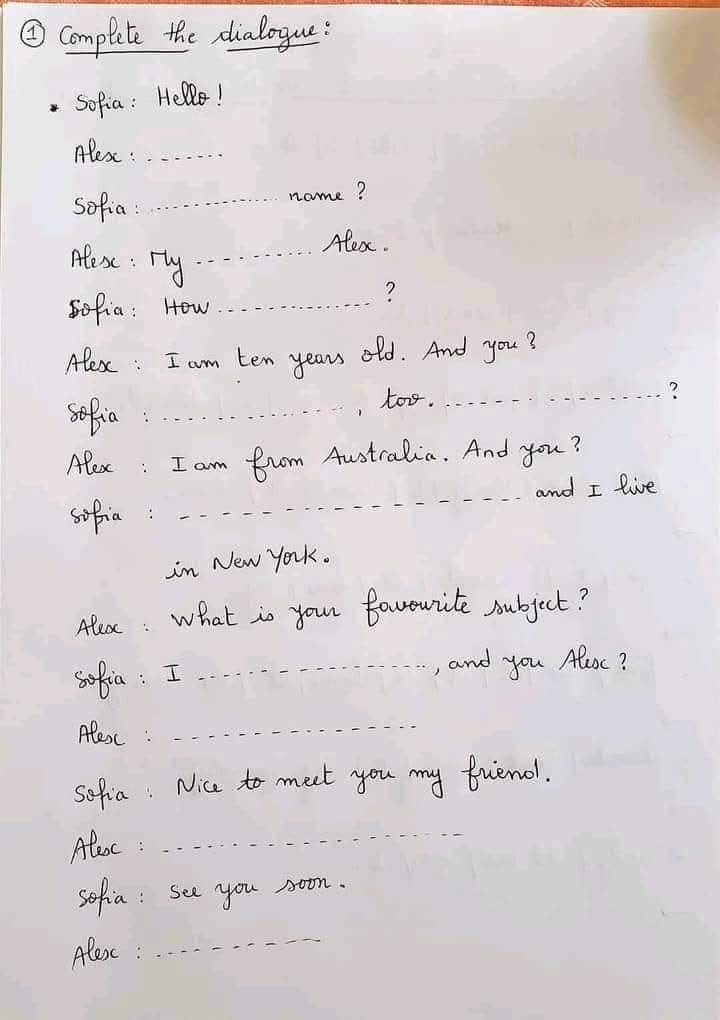 ① Complete the dialogue:
* Sofia: Hello!
Alex: .......
Sofia: .............. name?
Alex: My .......... Alex.
Sofia: How ...............?
Alex: I am ten years old. And you?
Sofia: ..............., too. ..................?
Alex: I am from Australia. And you?
Sofia: .................. and I live
in New York.
Alex: What is your favourite subject?
Sofia: I .................., and you Alex?
Alex: ..................
Sofia: Nice to meet you my friend.
Alex: .....................
Sofia: See you soon.
Alex: ............